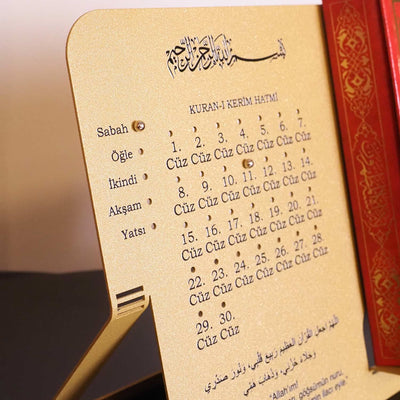 بسم الله الرحمن الرحيم
KURAN-I KERİM HATMİ
Sabah
Öğle
İkindi
Akşam
Yatsı
1. 2. 3. 4. 5. 6. 7.
Cüz Cüz Cüz Cüz Cüz Cüz Cüz
8. 9. 10. 11. 12. 13. 14.
Cüz Cüz Cüz Cüz Cüz Cüz Cüz
15. 16. 17. 18. 19. 20. 21.
Cüz Cüz Cüz Cüz Cüz Cüz Cüz
22. 23. 24. 25. 26. 27. 28.
Cüz Cüz Cüz Cüz Cüz Cüz Cüz
29. 30.
Cüz Cüz
اللهم اجعل القرآن العظيم ربيع قلبي، ونور صدري
وجلاء حزني، وذهاب همي
"Allah'ım!
göğsümün nuru,
ilacı eyle.